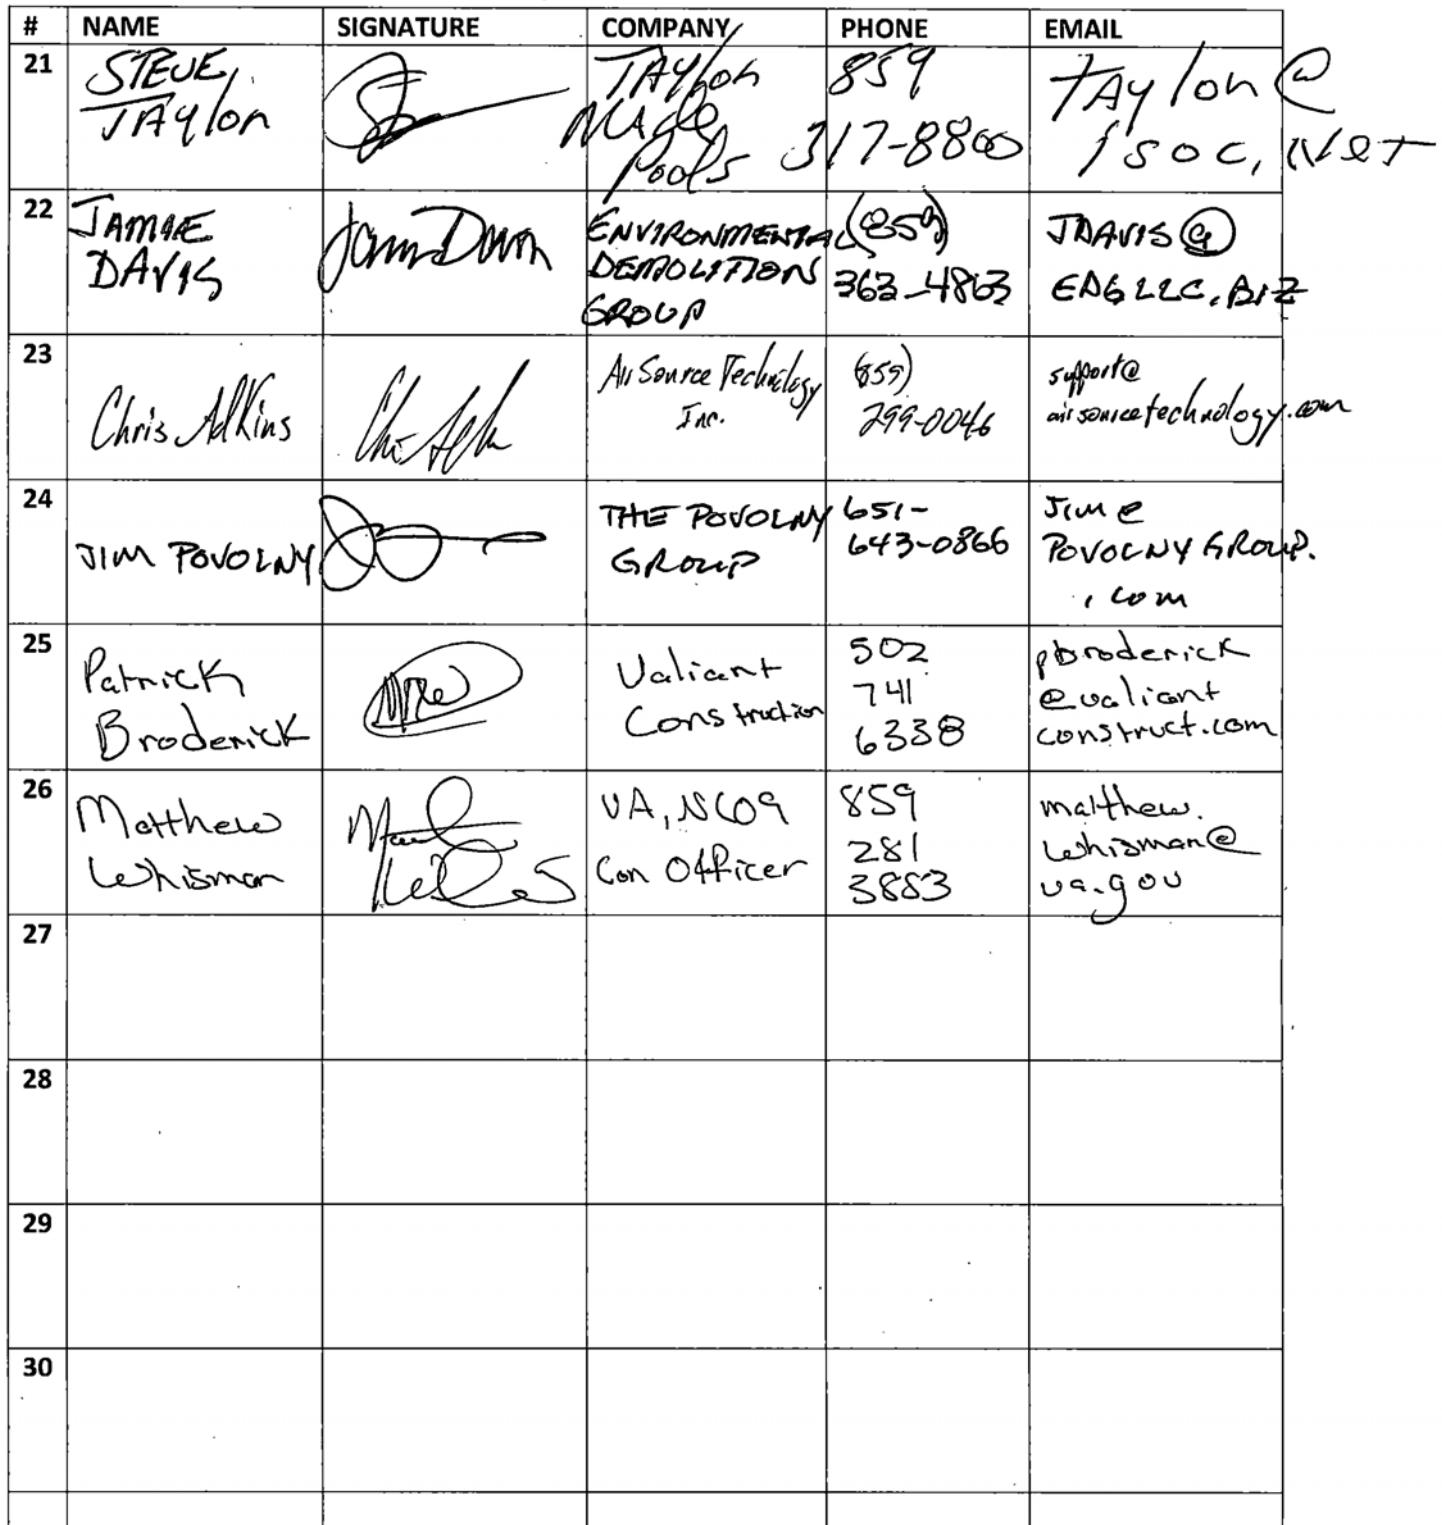 # NAME SIGNATURE COMPANY PHONE EMAIL
21
STEVE
TAYlor
TAYlor
MAde
Pools
859
317-8800
TAylor@
isoc.Net
22
JAMIE
DAVIS
ENVIRONMENTAL
DEMOLITION
GROUP
(859)
363-4863
JDAVIS@
EDGLLC.BIZ
23
Chris Adkins
Air Source Technology
Inc.
(859)
299-0046
support@
airsourcetechnology.com
24
JIM POVOLNY
THE POVOLNY
GROUP
651-
643-0866
JIM@
POVOLNYGROUP.
.com
25
Patrick
Broderick
Valiant
Construction
502
741
6338
pbroderick
@valiant
construct.com
26
Matthew
Whisman
VA, NCO9
Con Officer
859
281
3883
matthew.
whisman@
va.gov
27
28
29
30